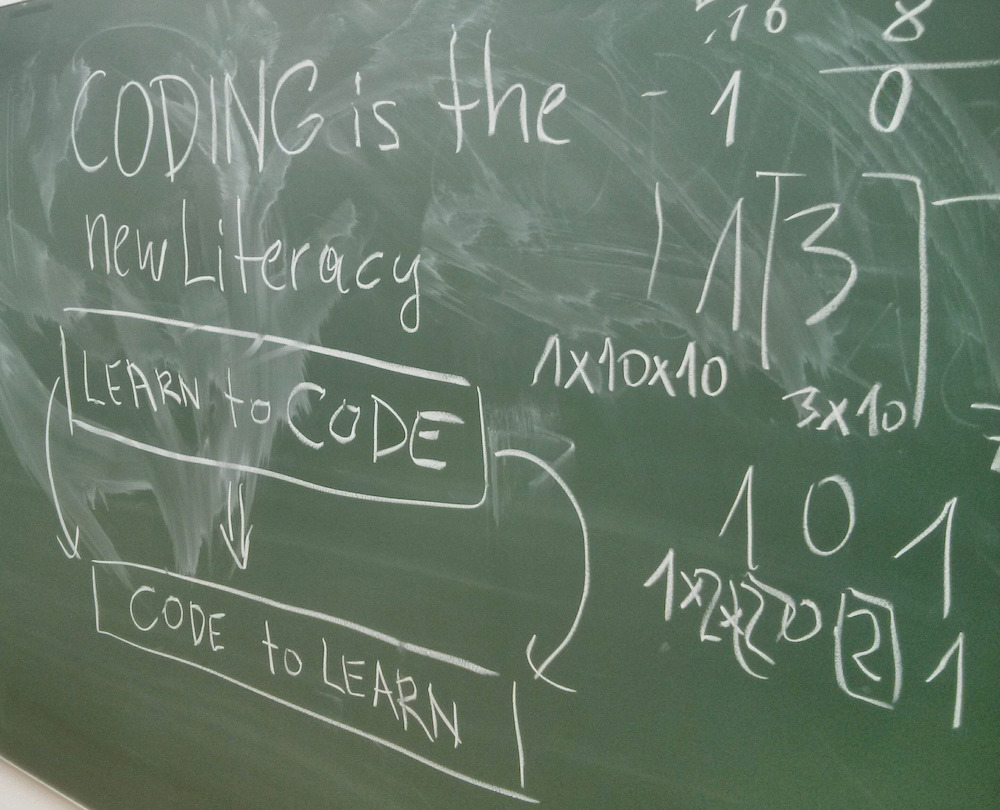 CODING is the
new Literacy
LEARN to CODE
CODE to LEARN
16 8
- 1 0
1 1 3
1x10x10
3x10
1 0 1
1x2x2 0 2 1